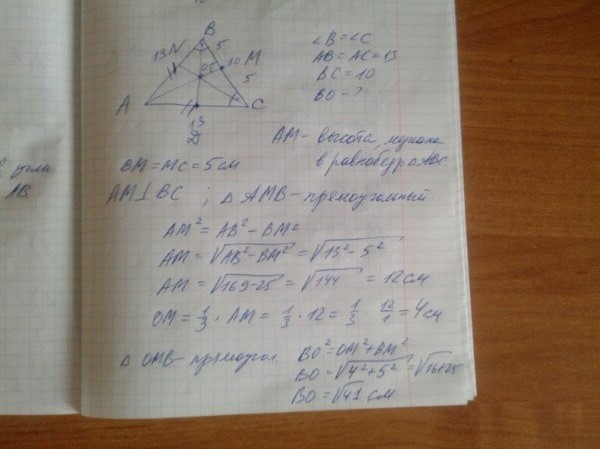 B
13 N 5
10 M
O 5
5
A C
13
D
∠B = ∠C
AB = AC = 13
BC = 10
BO - ?
AM - высота, медиана
в равнобедр
BM = MC = 5 см
AM ⊥ BC ; Δ AMB - прямоугольный
AB
AM² = AB² - BM²
AM = √AB² - BM² = √13² - 5²
AM = √169-25 = √144 = 12 см
OM = 1/3 · AM = 1/3 · 12 = 1/3 · 12/1 = 4 см
Δ OMB - прямоугол. BO² = OM² + BM²
BO = √4² + 5² = √16+25
BO = √41 см